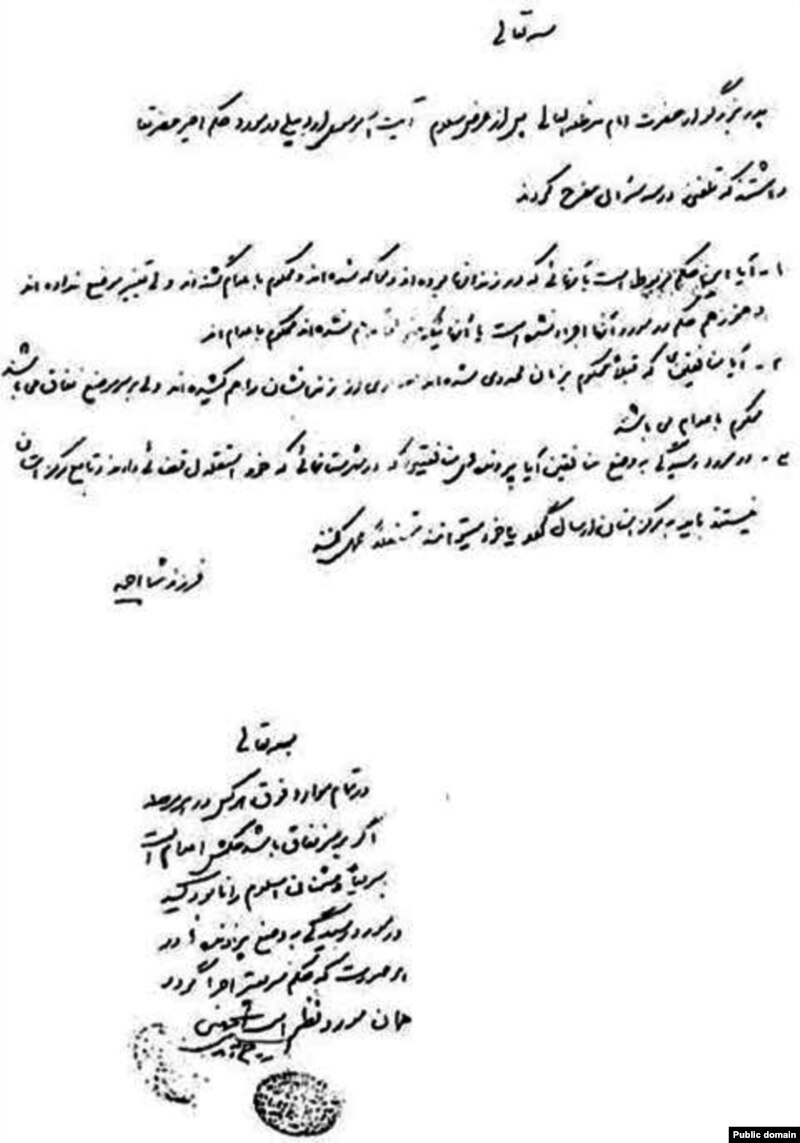 بسمه تعالی
پدر بزرگوار حضرت امام مدظله العالی پس از عرض سلام آیت‌الله موسوی اردبیلی در مورد حکم اخیر حضرتعالی
داشتند که تلفنی در سه سئوال مطرح کردند
۱ - آیا این حکم مربوط است به آنهائی که در زندانها بوده‌اند و محاکمه شده‌اند و محکوم به اعدام گشته‌اند ولی تغییر موضع نداده‌اند
و هنوز هم حکم در مورد آنها اجراء نشده است یا آنهائیکه حتی محاکمه هم نشده‌اند محکوم به اعدام‌اند
۲ - آیا منافقینی که قبلاً محکوم به زندان محدودی شده‌اند و مقداری از زندانشان را هم کشیده‌اند ولی بر سر موضع نفاق می‌باشند
محکوم به اعدام می‌باشند
۳ - در مورد رسیدگی به وضع منافقین آیا پرونده‌های منافقینی که در شهرستانهائی که خود استقلال قضائی دارند و تابع مرکز استان
نیستند باید به مرکز استان ارسال گردد یا خود میتوانند مستقلاً عمل کنند
فرزند شما احمد
بسمه تعالی
در تمام موارد فوق هر کس در هر مرحله
اگر بر سر نفاق باشد حکمش اعدام است
سریعاً دشمنان اسلام را نابود کنید
در مورد رسیدگی به وضع پرونده‌ها در
هر صورت که حکم سریعتر اجرا گردد
همان مورد نظر است
روح الله الموسوی الخمینی
Public domain